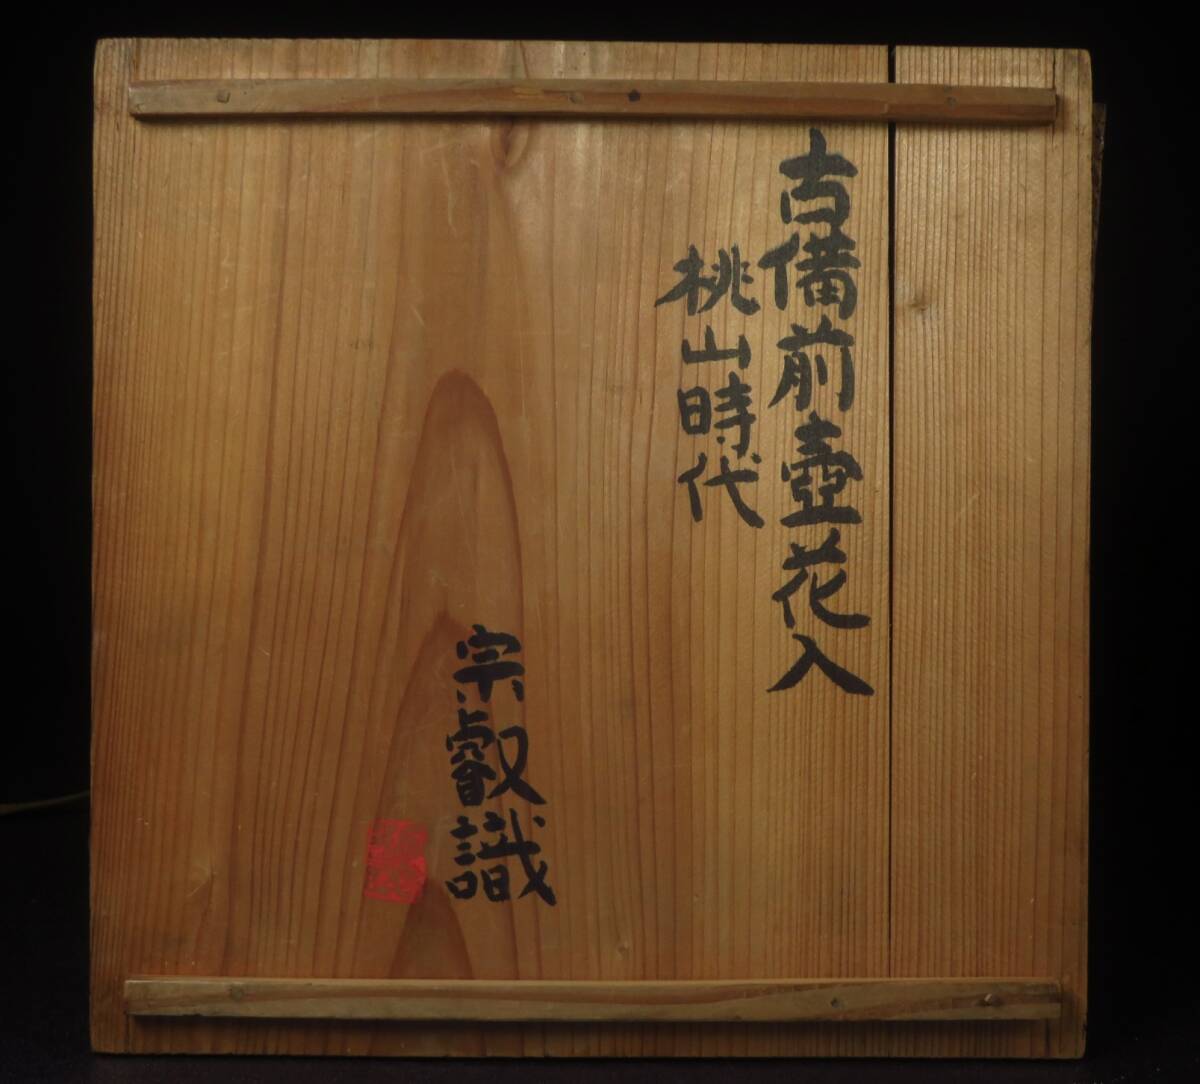 古備前壺花入
桃山時代
宗叡識